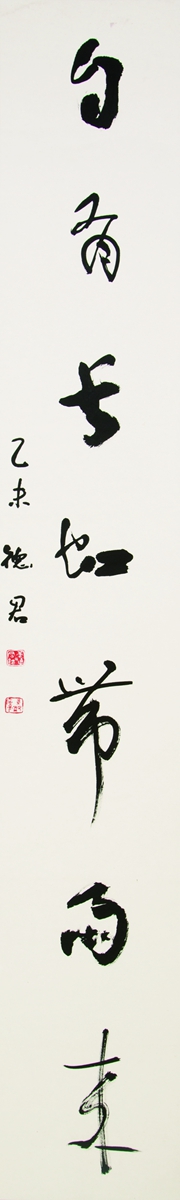 自有长虹带雨来
乙未 德君